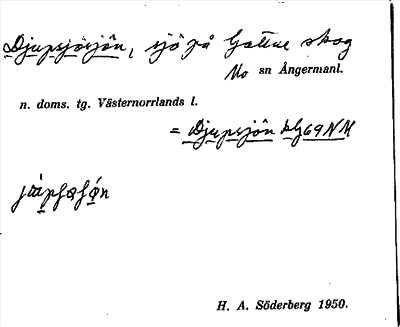 Djupsjösjön, sjö på Gottne skog
Mo sn Ångermanl.
n. doms. tg. Västernorrlands l.
= Djupsjön bl 69 NM
H. A. Söderberg 1950.